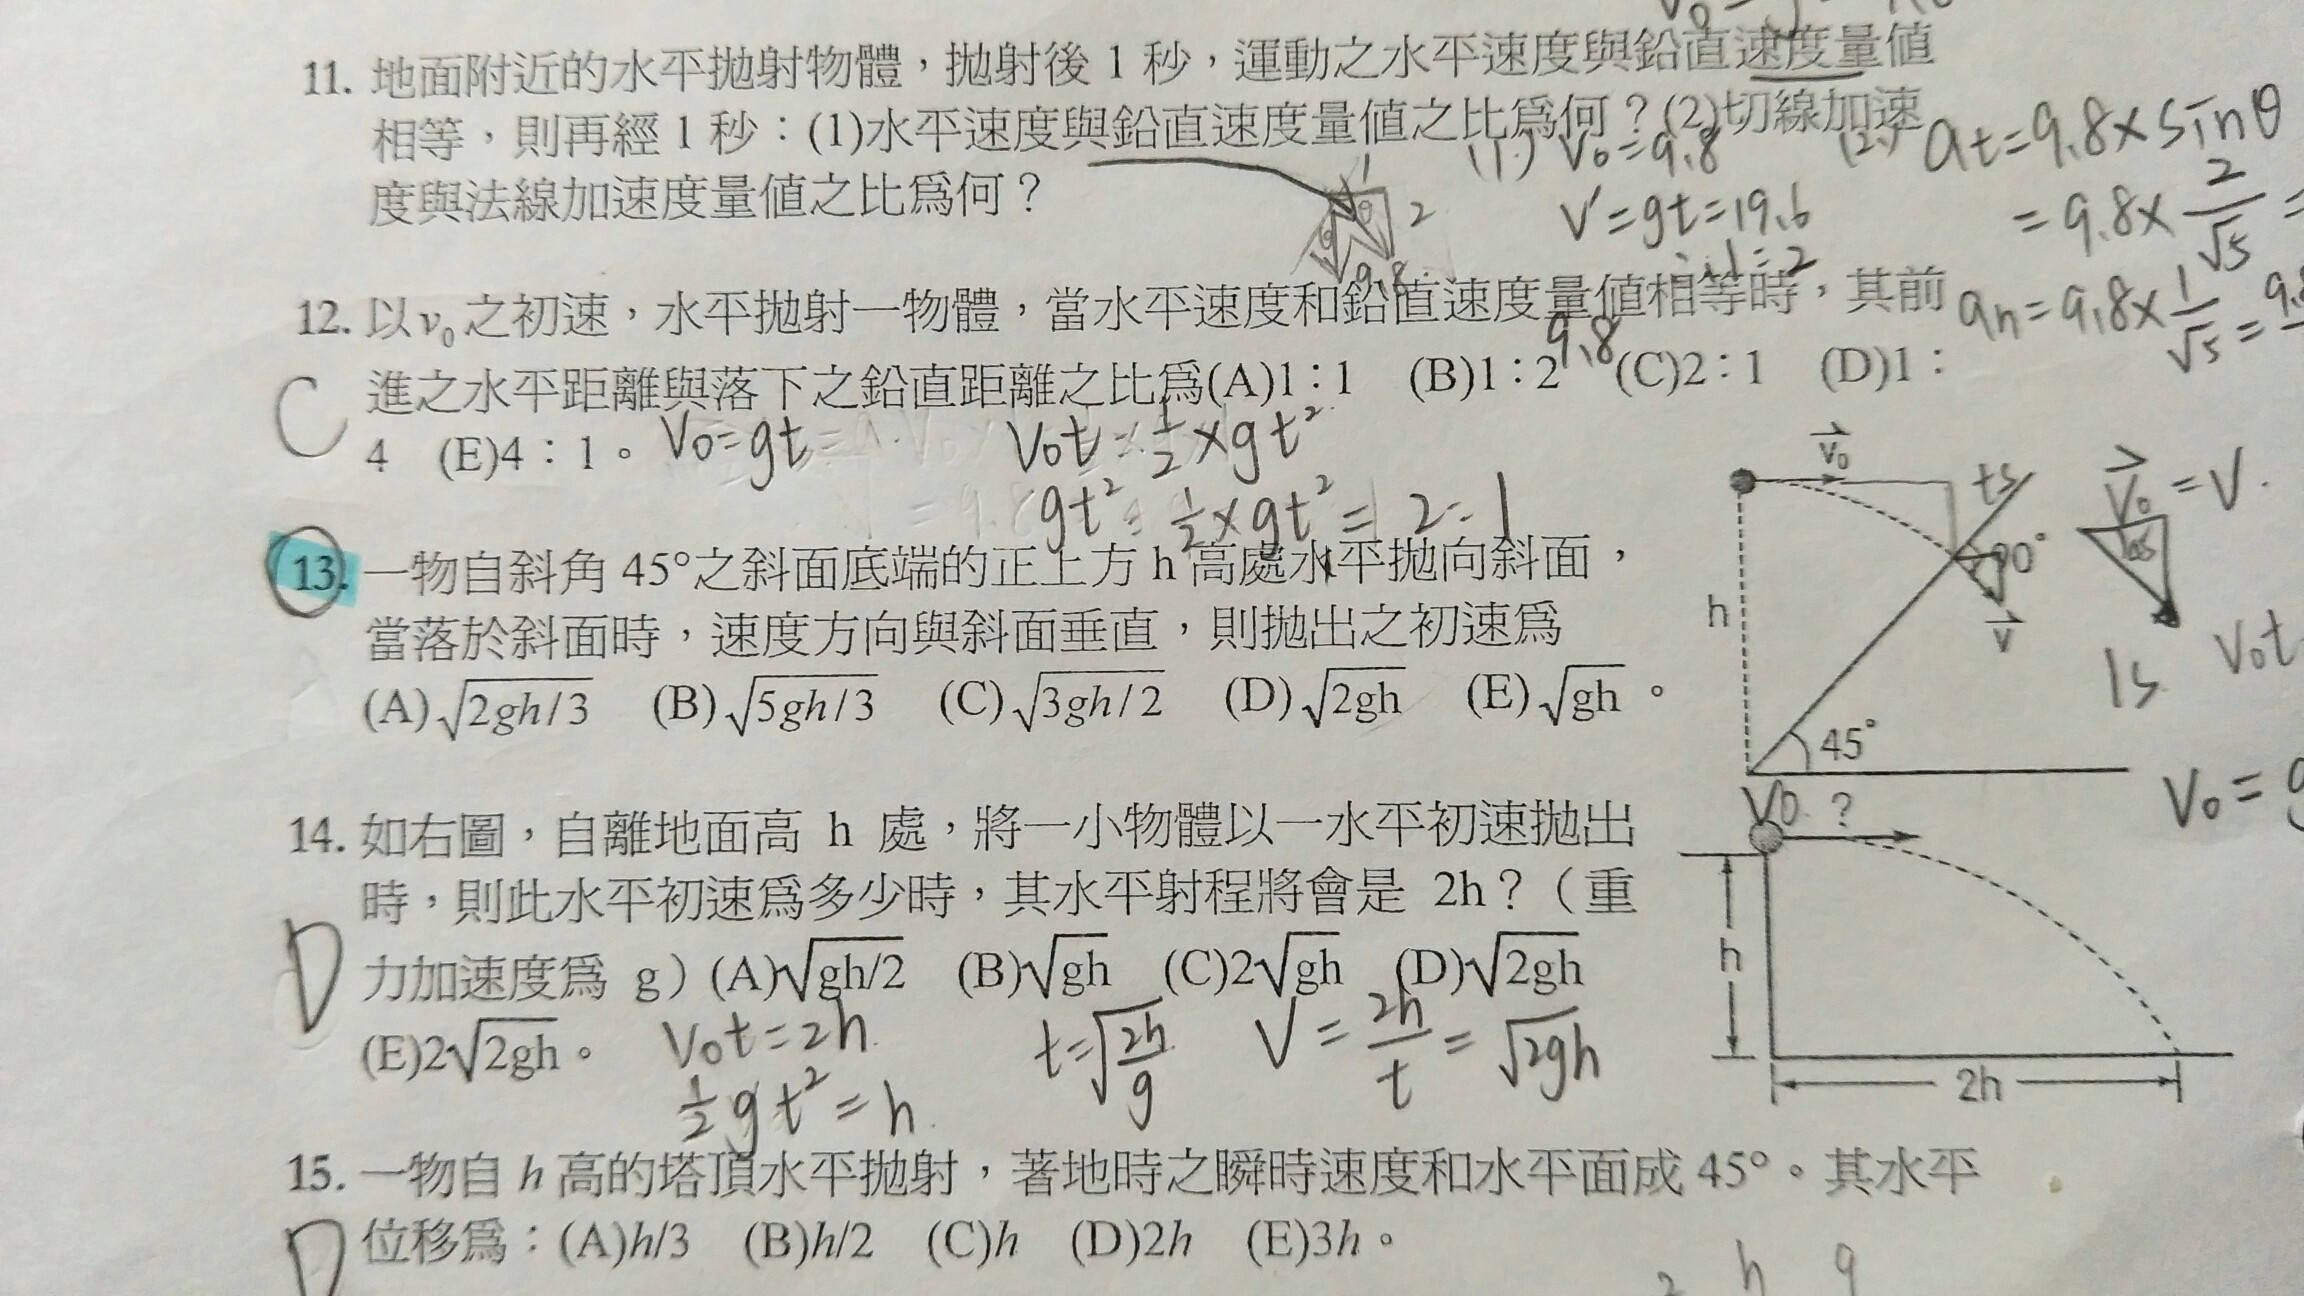 11. 地面附近的水平拋射物體，拋射後 1 秒，運動之水平速度與鉛直速度量值
相等，則再經 1 秒：(1)水平速度與鉛直速度量值之比為何？(2)切線加速
度與法線加速度量值之比為何？
(1) V₀=9.8
V'=gt=19.6
∴1:2
(2) at=9.8×sinθ
=9.8×2/√5=
an=9.8×1/√5=
1
2
θ
9.8
12. 以v₀之初速，水平拋射一物體，當水平速度和鉛直速度量值相等時，其前
進之水平距離與落下之鉛直距離之比為(A)1：1 (B)1：2 (C)2：1 (D)1：
4 (E)4：1。
C
9.8
V₀=gt
V₀t : 1/2×gt²
gt² : 1/2×gt² = 2:1
13. 一物自斜角 45°之斜面底端的正上方 h 高處水平拋向斜面，
當落於斜面時，速度方向與斜面垂直，則拋出之初速為
(A)√2gh/3 (B)√5gh/3 (C)√3gh/2 (D)√2gh (E)√gh。
v₀
ts
h
90°
v
45°
V₀=V
45
1s
V₀t
V₀=g
14. 如右圖，自離地面高 h 處，將一小物體以一水平初速拋出
時，則此水平初速為多少時，其水平射程將會是 2h？（重
力加速度為 g）(A)√gh/2 (B)√gh (C)2√gh (D)√2gh
(E)2√2gh。
D
V₀t=2h
1/2gt²=h
t=√2h/g
V=2h/t=√2gh
V₀ ?
h
2h
15. 一物自 h 高的塔頂水平拋射，著地時之瞬時速度和水平面成 45°。其水平
位移為：(A)h/3 (B)h/2 (C)h (D)2h (E)3h。
D